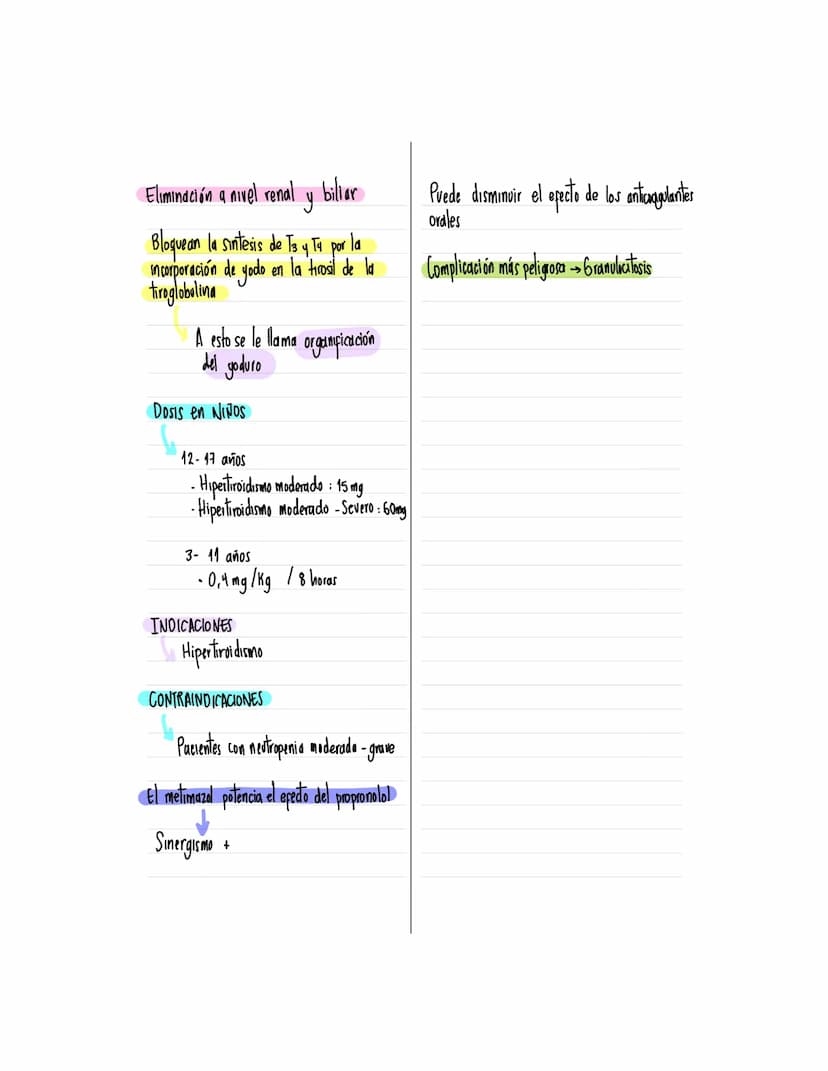 Eliminación a nivel renal y biliar
Bloquean la síntesis de T3 y T4 por la
incorporación de yodo en la tirosil de la
tiroglobulina
A esto se le llama organificación
del yoduro
Dosis en Niños
12-17 años
- Hipertiroidismo moderado : 15 mg
- Hipertiroidismo moderado - Severo : 60mg
3- 11 años
- 0,4 mg/Kg / 8 horas
INDICACIONES
Hipertiroidismo
CONTRAINDICACIONES
Pacientes con neutropenia moderada - grave
El metimazol potencia el efecto del propronolol
Sinergismo +
Puede disminuir el efecto de los anticoagulantes
orales
Complicación más peligrosa → Granulocitosis